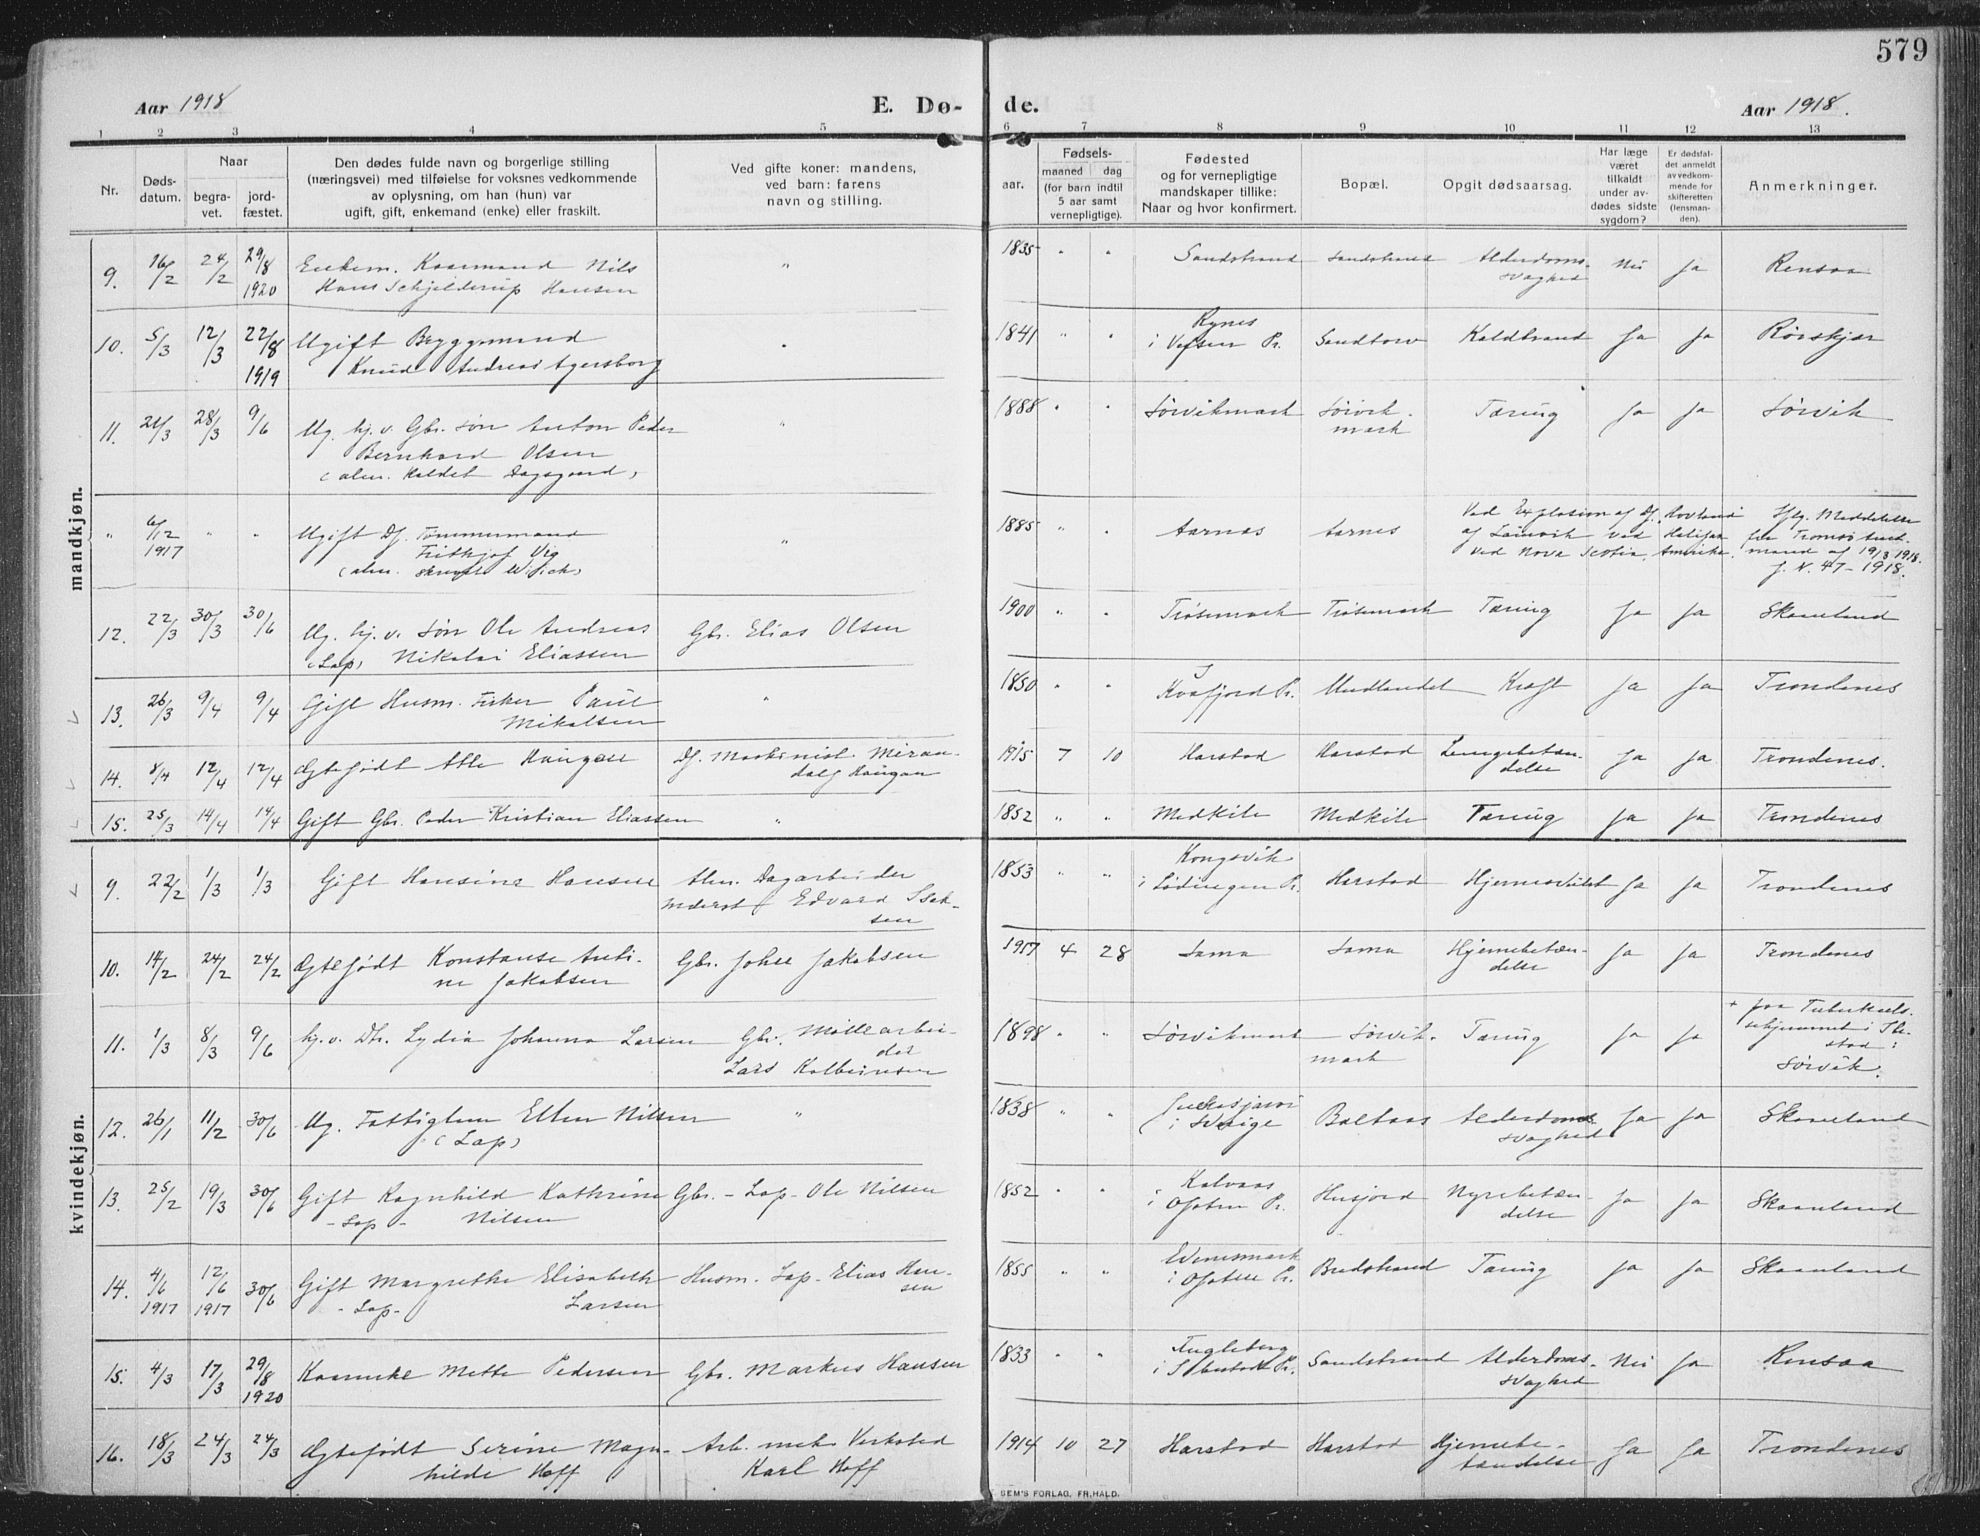 579
Aar 1918
E. Dø-
de.
Aar 1918.
1 2 3 4 5 6 7 8 9 10 11 12 13
Nr.
Døds-
datum.
Naar
begra-
vet.
jord-
fæstet.
Den dødes fulde navn og borgerlige stilling
(næringsvei) med tilføielse for voksnes vedkommende
av oplysning, om han (hun) var
ugift, gift, enkemand (enke) eller fraskilt.
Ved gifte koner: mandens,
ved barn: farens
navn og stilling.
Fødsels-
aar.
maaned
dag
(for barn indtil
5 aar samt
vernepligtige).
Fødested
og for vernepligtige
mandskaper tillike:
Naar og hvor konfirmert.
Bopæl.
Opgit dødsaarsag.
Har læge
været
tilkaldt
under av-
dødes sidste
sygdom?
Er dødsfal-
det anmeldt
av vedkom-
mende for
skifteretten
(lensman-
den).
Anmerkninger.
mandkjøn.
9. 16/2 24/2 29/8 1920 Enkem. Kaarmand Nils
Hans Schjelderup Hansen
" 1835 " " Sandstrand Sandstrand Alderdoms-
svaghed Nei Ja Rensaa
10. 5/3 12/3 22/8 1919 Ugift Byggmand
Knud Andreas Agersborg
" 1841 " " Rynes
i Vefsen Pr. Sandtorv Koldbrand Ja Ja Rørskjær
11. 21/3 28/3 9/6 Ug. hj.v. Gbr. søn Anton Peder
Bernhard Olsen
(alm. kaldet Dagsgaard)
" 1888 " " Sørvikmark Sørvik-
mark Tæring Ja Ja Sørvik
" 6/12 1917 " " Ugift Df. Tømmermand
Fritkjof Vig
(alm. skrevet Wick)
" 1885 " " Aarnes Aarnes Ved Explosion af Df. Hovland
af Larvik ved Halifax
ved Nova Scotia, Amerika.
Iflg. Meddelelse
fra Tromsø Amt-
mand af 19/3 1918.
J. N. 47-1918.
12. 22/3 30/3 30/6 Ug. hj.v. søn Ole Andreas
(Lap) Nikolai Eliassen
Gbr. Elias Olsen 1900 " " Trøsemark Trøsemark Tæring Ja Ja Skaanland
13. 26/3 9/4 9/4 Gift Husm. Fisker Paul
Mikalsen
" 1850 " " I
Kvæfjord Pr. Undlandet Kræft Ja Ja Trondenes
14. 8/4 12/4 12/4 Ægtefødt Atle Haugan Df. Maskinist Miran-
dolf Haugan
1915 7 10 Harstad Harstad Lungebetæn-
delse Ja Ja Trondenes.
15. 25/3 14/4 14/4 Gift Gbr. Peder Kristian Eliassen " 1852 " " Medkile Medkile Tæring Ja Ja Trondenes
kvindekjøn.
9. 22/2 1/3 1/3 Gift Hansine Hansen Alm. Dagarbeider
Edvard Isak-
sen
1853 " " Kongsvik
i Lødingen Pr. Harstad Hjernesvulst Ja Ja Trondenes
10. 14/2 24/2 24/2 Ægtefødt Konstanse Anti-
ne Jakobsen
Gbr. Johan Jakobsen 1917 4 28 Sama Sama Hjernebetæn-
delse Ja Ja Trondenes
11. 1/3 8/3 9/6 hj.v. Dtr. Lydia Johanna Larsen Gbr. Møllearbei-
der
Lars Kolbeinsen
1898 " " Sørvikmark Sørvik-
mark Tæring Ja Ja + paa Tuberkulose-
hjemmet i Har-
stad:
Sørvik.
12. 26/1 11/2 30/6 Ug. Fattiglem Ellen Nilsen
(Lap)
" 1838 " " Jukkasjærvi
i Sverige Boltaas Alderdoms-
svaghed Ja Ja Skaanland
13. 25/2 19/3 30/6 Gift Ragnhild Kathrine
- Lap - Nilsen
Gbr. - Lap - Ole Nilsen 1852 " " Kalvaas
i Ofoten Pr. Husjord Nyrebetæn-
delse Ja Ja Skaanland
14. 4/6 1917 12/6 1917 30/6 Gift Margrethe Elisabeth
- Lap - Larsen
Husm. Lap - Elias Han-
sen
1855 " " Evenesmark
i Ofoten Pr. Budstrand Tæring Ja Ja Skaanland
15. 4/3 17/3 29/8 1920 Kaarenke Mette Pedersen Gbr. Markus Hansen 1833 " " Fugleberg
i Ibestad Pr. Sandstrand Alderdoms-
svaghed Nei Ja Rensaa
16. 18/3 24/3 24/3 Ægtefødt Serine Magn-
hilde Hoff
Arb. mek. Verksted
Karl Hoff
1914 10 27 Harstad Harstad Hjernebe-
tændelse Ja Ja Trondenes
SEM'S FORLAG, FR.HALD.